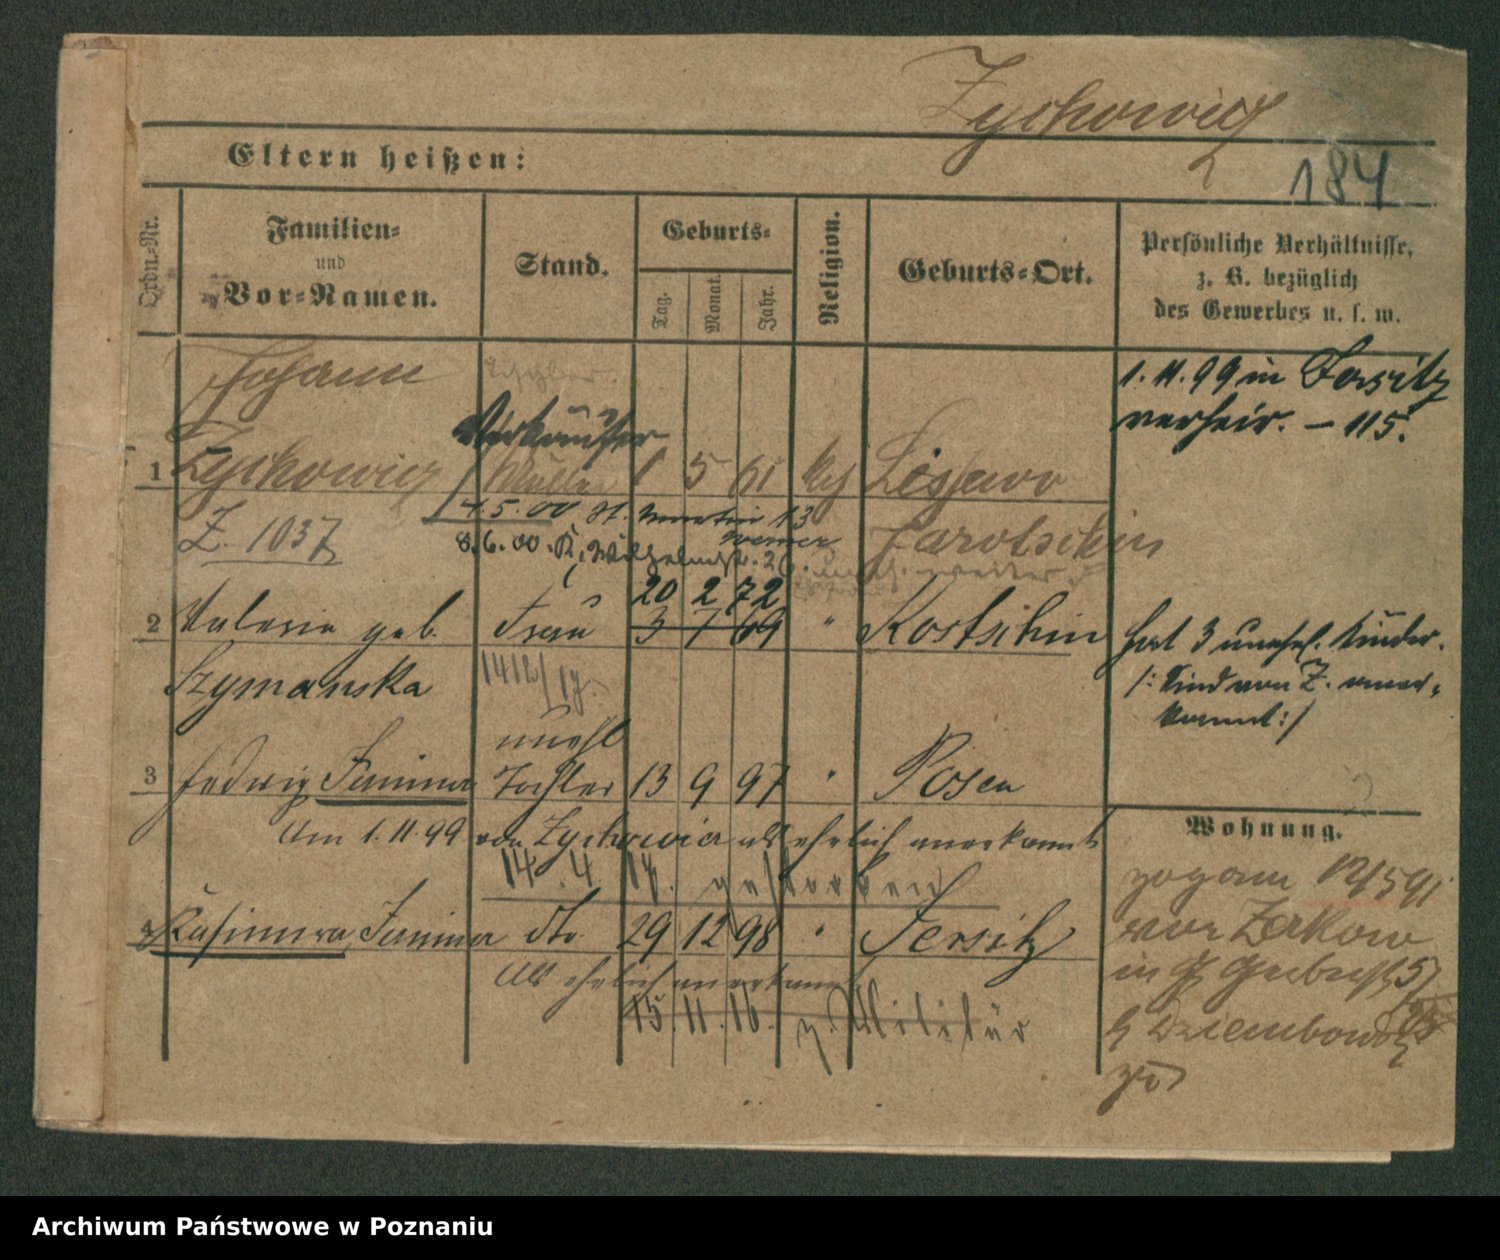 Zychowicz
Eltern heißen:
184
Ordn.-Nr.
Familien-
und
Vor-Namen.
Stand.
Geburts-
Tag.
Monat.
Jahr.
Religion.
Geburts-Ort.
Persönliche Verhältnisse,
z. B. bezüglich
des Gewerbes u. s. w.
Johann
1. 11. 99 in Jersitz
verheir. – 115.
Verkäufer
1 Zychowicz 5 61 Lissewo
4.5.00 St. Martin 13
Z. 1037
8.6.00 Wilhelmstr. 26. Jarotschin
20 2 72
2 Valeria geb. Frau 3 7 69 " Kostschin
hat 3 unehel. Kinder.
Szymanska 1412/17.
/: Sind von Z. aner-
kannt:/
unehl
3 Hedwig Janina Tochter 13 9 97 " Posen
Am 1.11.99 von Zychowicz als ehelich anerkannt
14. 4. gestorben
Wohnung.
4 Kasimira Janina dto. 29 12 98 " Jersitz
Als ehelich anerkannt
15. 11. 16. z. Militär
von Zerkow
in
Dziembowski
Archiwum Państwowe w Poznaniu